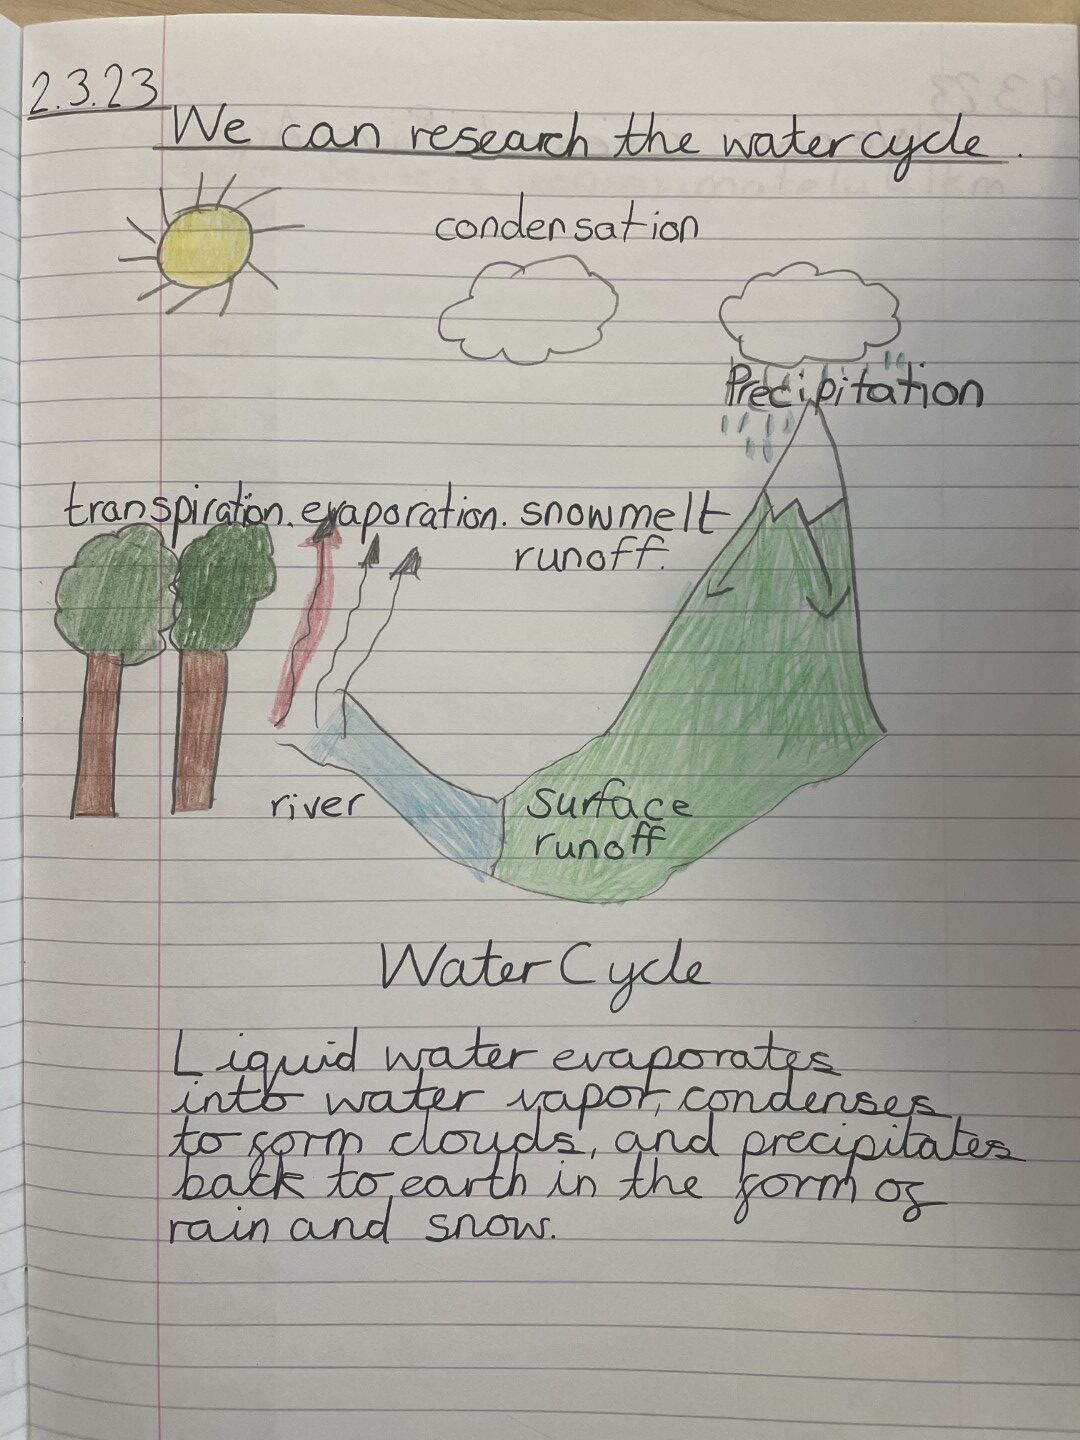 2.3.23
We can research the water cycle.
condensation
Precipitation
transpiration. evaporation. snowmelt
runoff.
river
Surface
runoff
Water Cycle
Liquid water evaporates
into water vapor, condenses
to form clouds, and precipitates
back to earth in the form of
rain and snow.